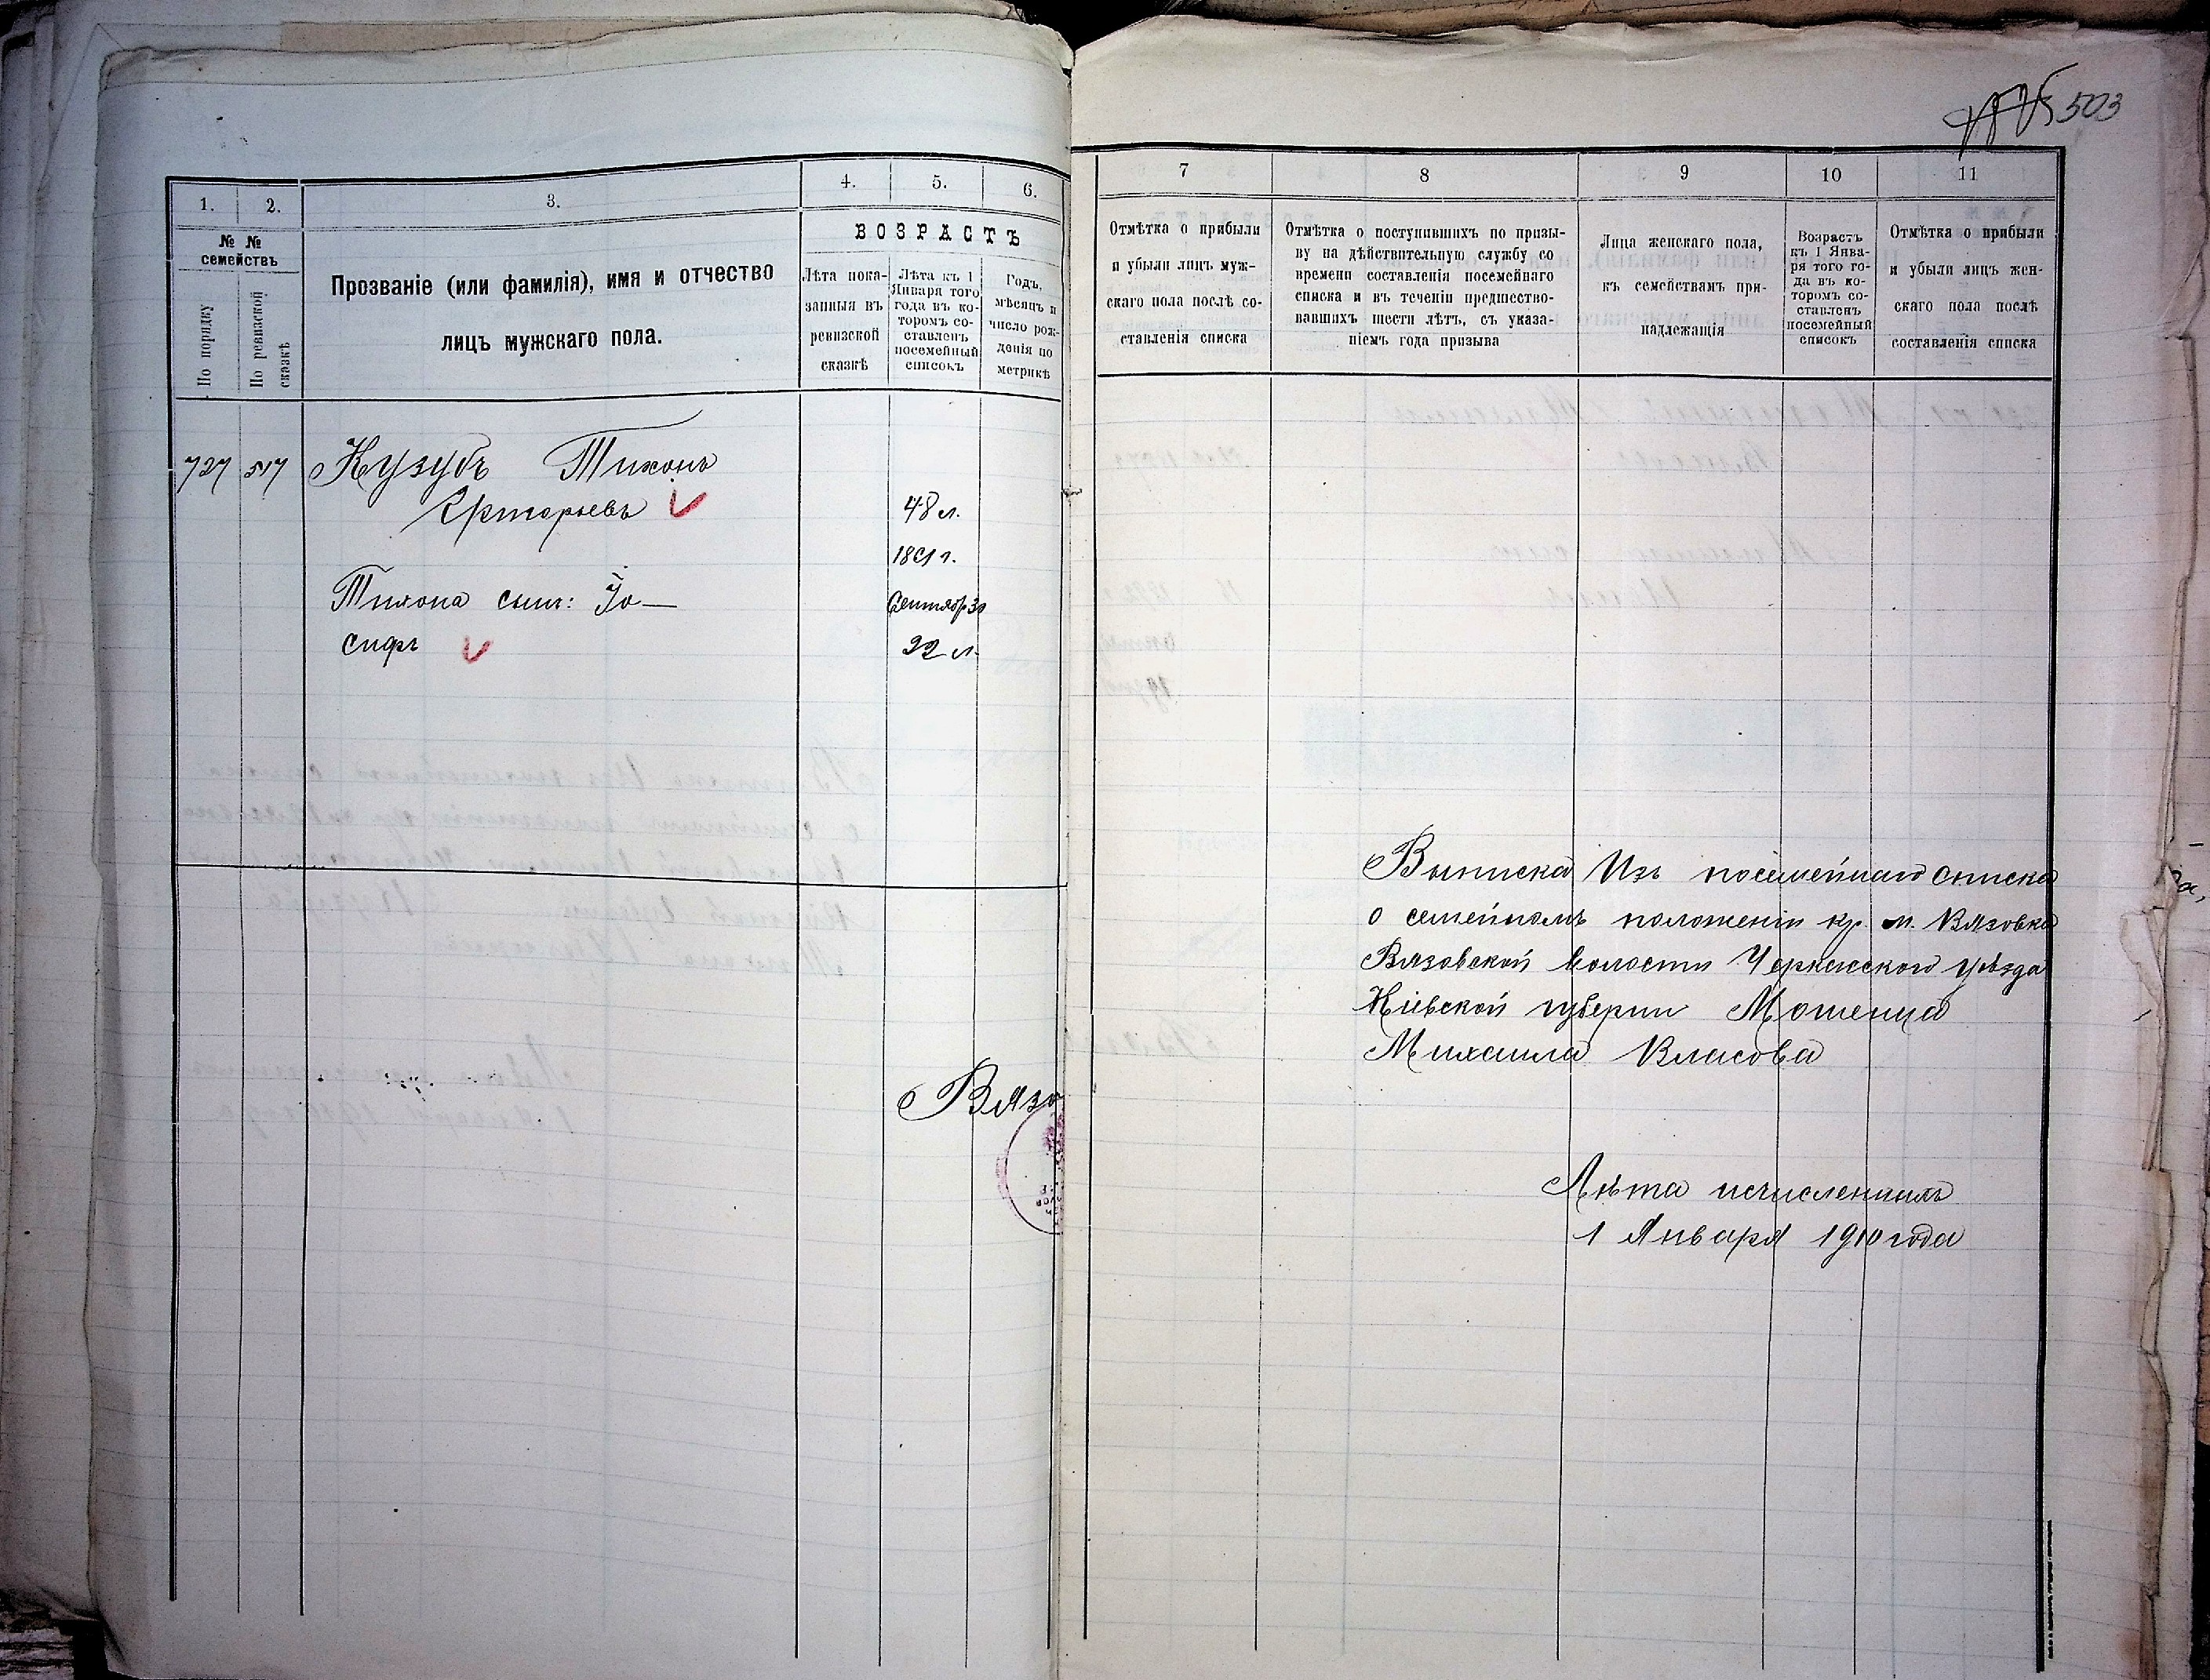 503
1. 2. 3. 4. 5. 6.
№ №
семействъ
По порядку
По ревизской
сказкѣ
Прозваніе (или фамилія), имя и отчество
лицъ мужскаго пола.
ВОЗРАСТЪ
Лѣта пока-
занныя въ
ревизской
сказкѣ
Лѣта къ 1
Января того
года въ ко-
торомъ со-
ставленъ
посемейный
списокъ
Годъ,
мѣсяцъ и
число рож-
денія по
метрикѣ
727 517 Кузубъ Тихонъ
Григорьевъ
48 л.
Тихона сынъ: Іо-
Сентябр 30
сифъ
22 л.
Вязо
7 8 9 10 11
Отмѣтка о прибыли
и убыли лицъ муж-
скаго пола послѣ со-
ставленія списка
Отмѣтка о поступившихъ по призы-
ву на дѣйствительную службу со
времени составленія посемейнаго
списка и въ теченіи предшество-
вавшихъ шести лѣтъ, съ указа-
ніемъ года призыва
Лица женскаго пола,
къ семействамъ при-
надлежащія
Возрастъ
къ 1 Янва-
ря того го-
да въ ко-
торомъ со-
ставленъ
посемейный
списокъ
Отмѣтка о прибыли
и убыли лицъ жен-
скаго пола послѣ
составленія списка
Выписка Изъ посемейнаго списка
о семейномъ положеніи кр. м. Вязовка
Вязовской волости Черкасского уѣзда
Кіевской губерніи Мошенца
Михаила Власова
Лѣта исчисленныя
1 Января 1910 года